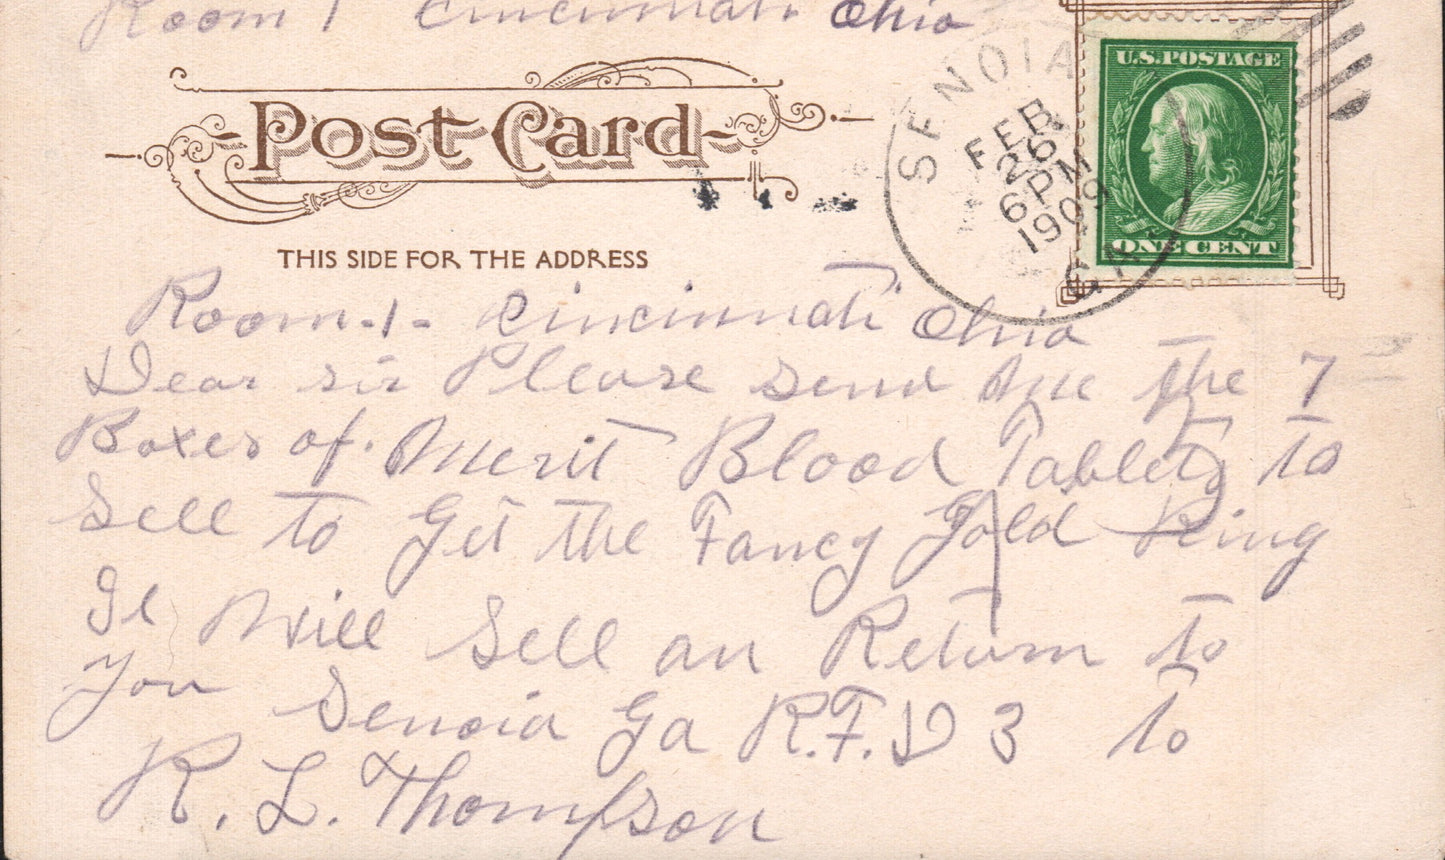 Room 1 Cincinnati Ohio
U.S. POSTAGE
SENOIA
FEB
26
6 PM
1909
GA
ONE CENT
Post Card
THIS SIDE FOR THE ADDRESS
Room-1- Cincinnati Ohio
Dear sir Please send me the 7
Boxes of Merit Blood Tablets to
Sell to Get the Fancy Gold Ring
Il Will Sell an Return to
You Senoia Ga R.F.D 3 To
R. L. Thompson